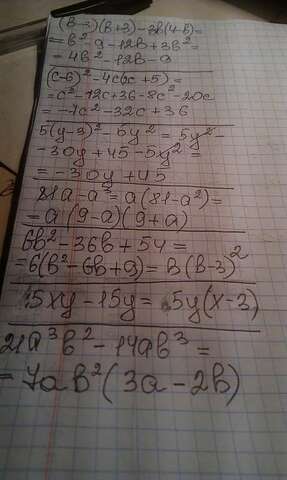 (в-3)(в+3)-3в(4-в)=
=в²-9-12в+3в²=
=4в²-12в-9
(c-6)²-4c(c+5)=
=c²-12c+36-8c²-20c
=-7c²-32c+36
5(y-3)²-5y²=5y²-
-30y+45-5y²=
=-30y+45
81a-a³=a(81-a²)=
=a(9-a)(9+a)
6в²-36в+54=
=6(в²-6в+9)=в(в-3)²
5xy-15y=5y(x-3)
21a³в²-14aв³=
=7aв²(3a-2в)